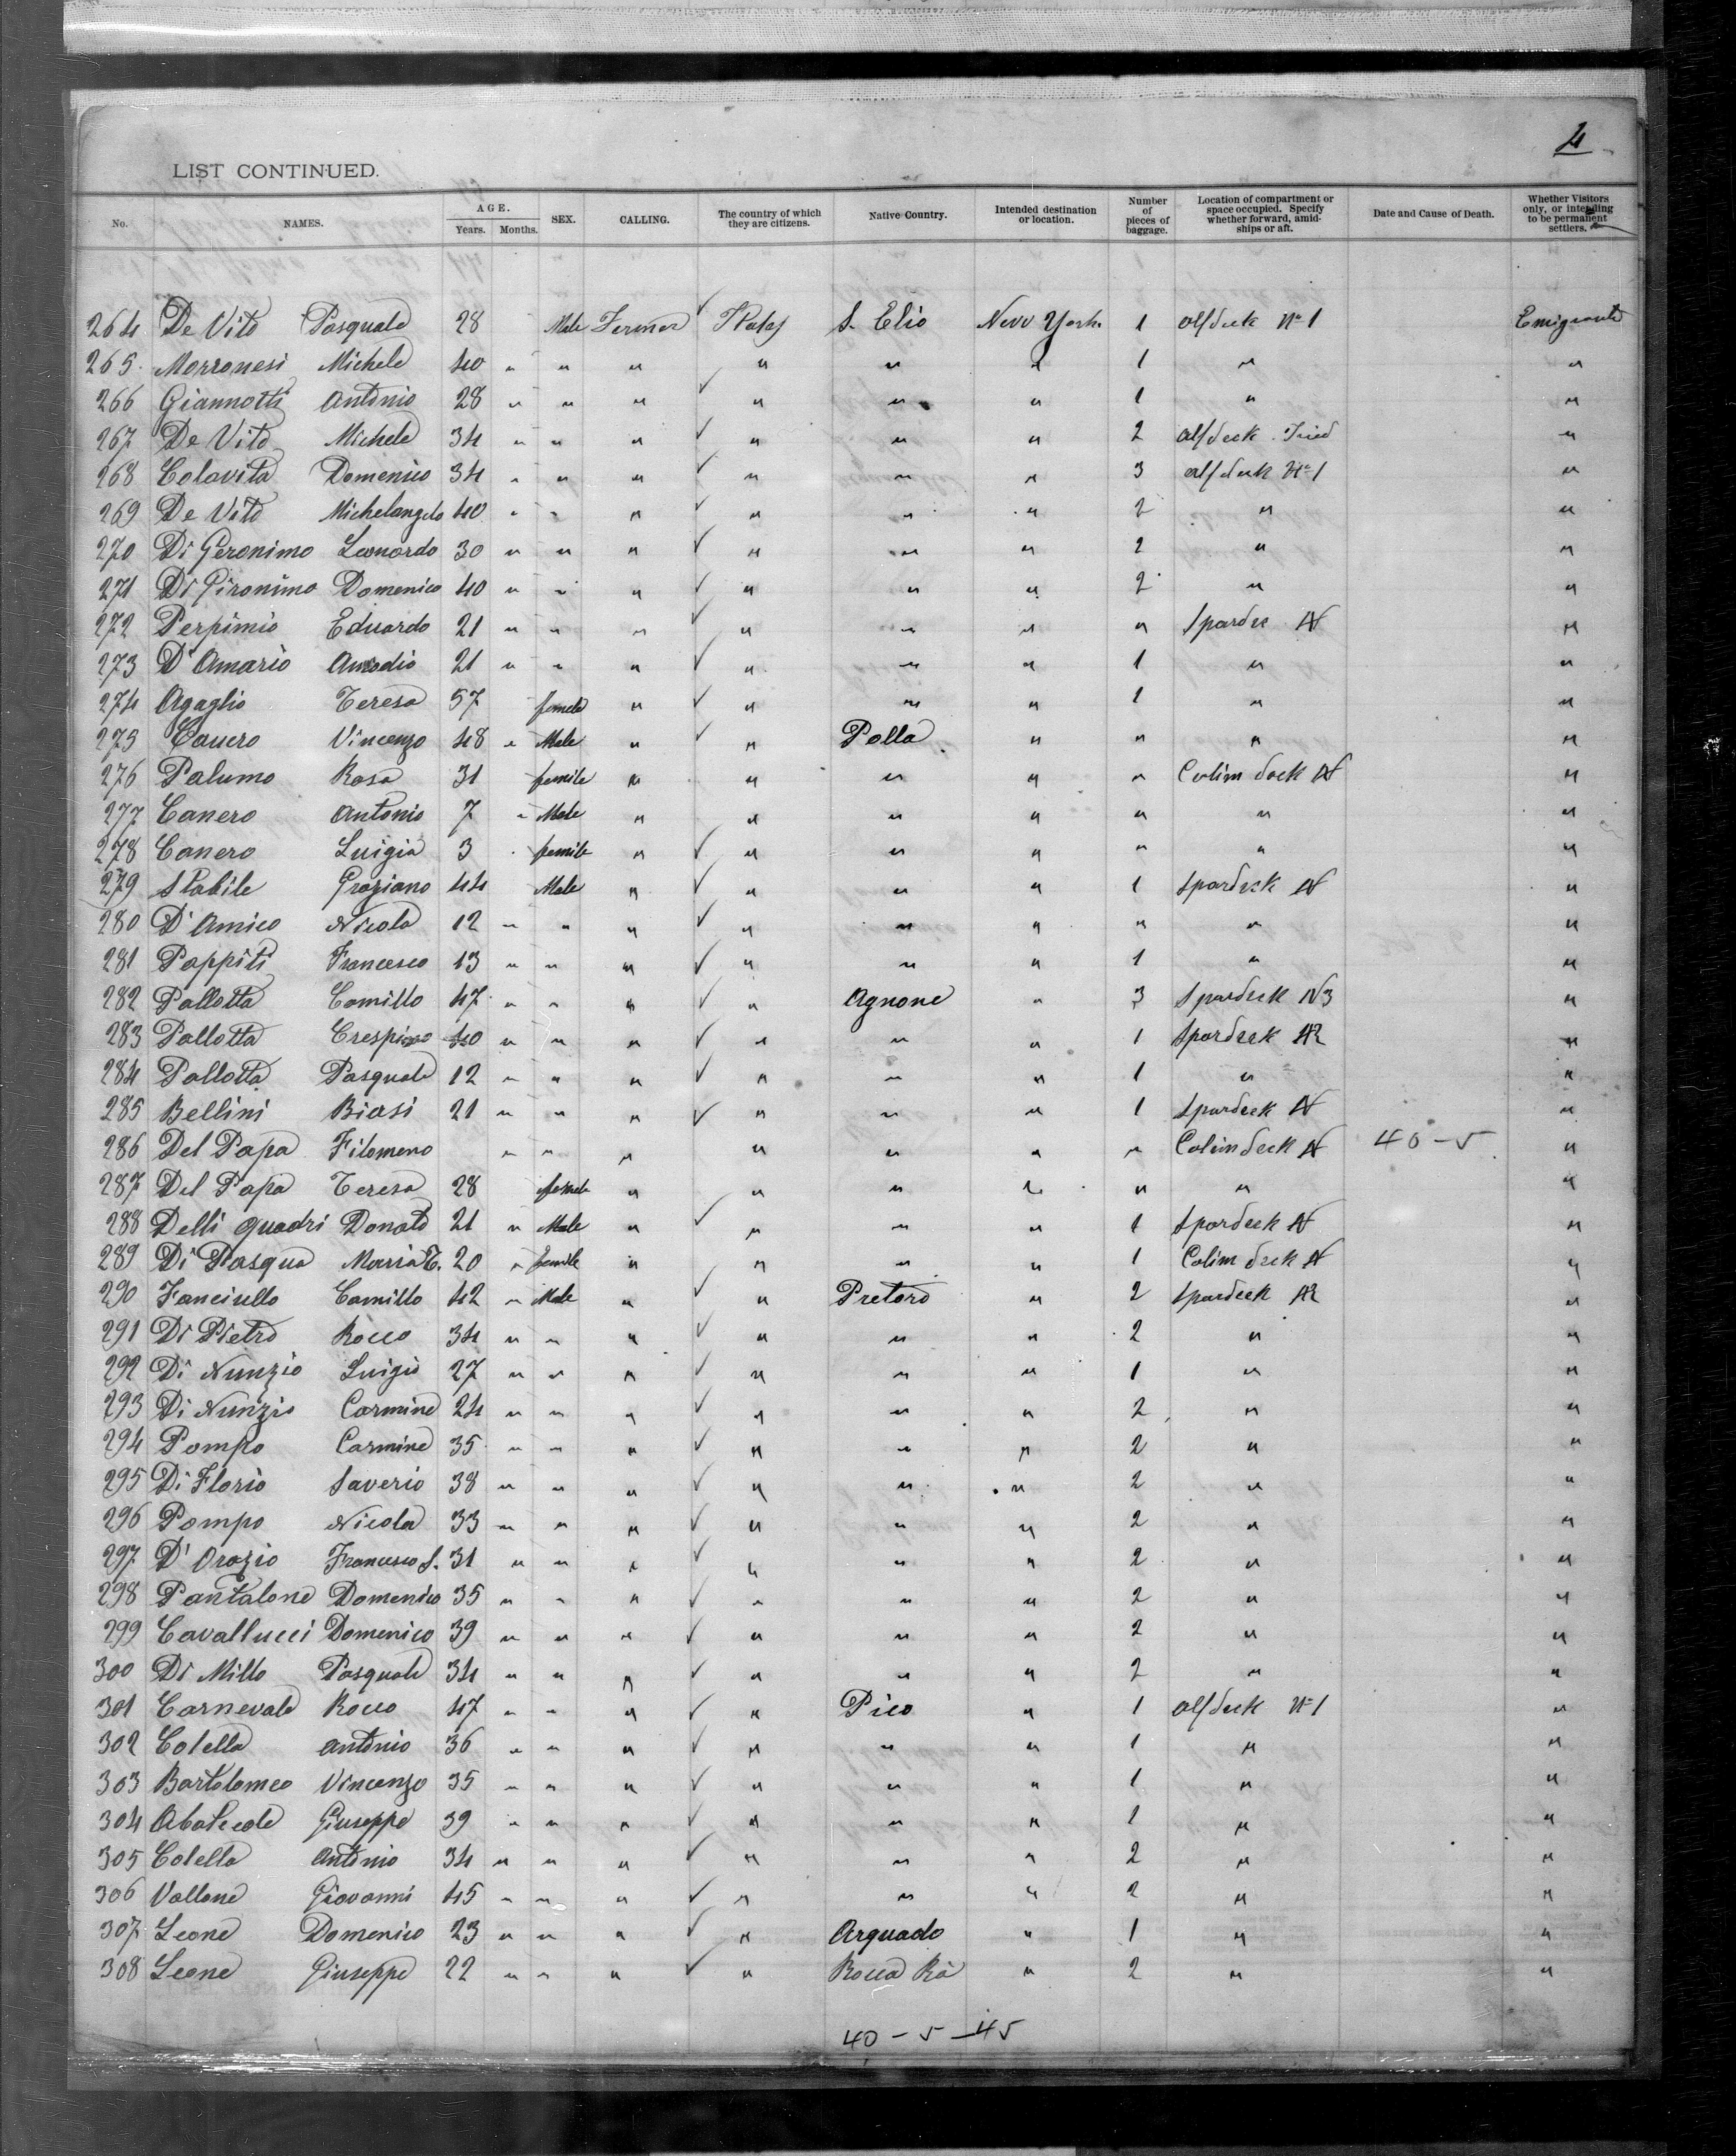 4
LIST CONTINUED.
No. NAMES. AGE. Years. Months. SEX. CALLING. The country of which they are citizens. Native Country. Intended destination or location. Number of pieces of baggage. Location of compartment or space occupied. Specify whether forward, amidships or aft. Date and Cause of Death. Whether Visitors only, or intending to be permanent settlers.
264 De Vito Pasquale 28 Male Fermer ✓ Italy S. Elio New York 1 alfdeck N=1 Emigrants
265 Morronesi Michele 40 " " " " " " 1 " "
266 Giannotti Antonio 28 " " " ✓ " " " 1 " "
267 De Vito Michele 34 " " " ✓ " " " 2 alfdeck "
268 Colavita Domenico 34 " " " ✓ " " " 3 alfdeck N=1 "
269 De Vito Michelangelo 40 " " " ✓ " " " 2 " "
270 Di Geronimo Leonardo 30 " " " ✓ " " " 2 " "
271 Di Gironimo Domenico 40 " " " ✓ " " " 2 " "
272 Perpimio Eduardo 21 " " " ✓ " " " " Spardec N "
273 D'Amario Amodio 21 " " " ✓ " " " 1 " "
274 Agaglio Teresa 57 femele " ✓ " " " 1 " "
275 Cauero Vincenzo 48 " Male " ✓ " Polla " " " "
276 Palumo Rosa 31 femile " " " " " Colim deck N "
277 Canero Antonio 7 " Male " " " " " " "
278 Canero Luigia 3 femile " ✓ " " " " " "
279 Stabile Graziano 44 Male " ✓ " " " 1 spardeck N "
280 D'Amico Nicola 12 " " " ✓ " " " " " "
281 Pappiti Francesco 13 " " " ✓ " " " 1 " "
282 Pallotta Camillo 47 " " " ✓ " Agnone " 3 Spardeck N3 "
283 Pallotta Crespino 40 " " " ✓ " " " 1 Spardeck N2 "
284 Pallotta Pasquale 12 " " " ✓ " " " 1 " "
285 Bellini Biasi 21 " " " ✓ " " " 1 Spardeck N "
286 Del Papa Filomeno " " " " " " " Colimdeck N 40-5 "
287 Del Papa Teresa 28 femele " " " " " " "
288 Delli Quadri Donato 21 " Male " ✓ " " " 1 Spardeck N "
289 Di Pasqua Maria T. 20 " femile " " " " 1 Colim deck N "
290 Fanciullo Camillo 42 " Male " ✓ " Pretoro " 2 Spardeck N2 "
291 Di Pietro Rocco 34 " " " ✓ " " " 2 " "
292 Di Nunzio Luigio 27 " " " ✓ " " " 1 " "
293 Di Nunzio Carmine 24 " " " ✓ " " " 2 " "
294 Pompo Carmine 35 " " " ✓ " " " 2 " "
295 Di Florio Saverio 38 " " " ✓ " " " 2 " "
296 Pompo Nicola 33 " " " ✓ " " " 2 " "
297 D'Orazio Francesco S. 31 " " " ✓ " " " 2 " "
298 Pantalone Domenico 35 " " " ✓ " " " 2 " "
299 Cavallucci Domenico 39 " " " ✓ " " " 2 " "
300 Di Millo Pasquale 34 " " " ✓ " " " 2 " "
301 Carnevale Rocco 47 " " " ✓ " Pico " 1 alfdeck N=1 "
302 Colella Antonio 36 " " " ✓ " " " 1 " "
303 Bartolomeo Vincenzo 35 " " " ✓ " " " 1 " "
304 Abatecole Giuseppe 39 " " " ✓ " " " 1 " "
305 Colella Antonio 34 " " " ✓ " " " 2 " "
306 Vallone Giovanni 45 " " " ✓ " " " 2 " "
307 Leone Domenico 23 " " " ✓ " Arquado " 1 " "
308 Leone Giuseppe 22 " " " ✓ " Rocca Rà " 2 " "
40-5-45